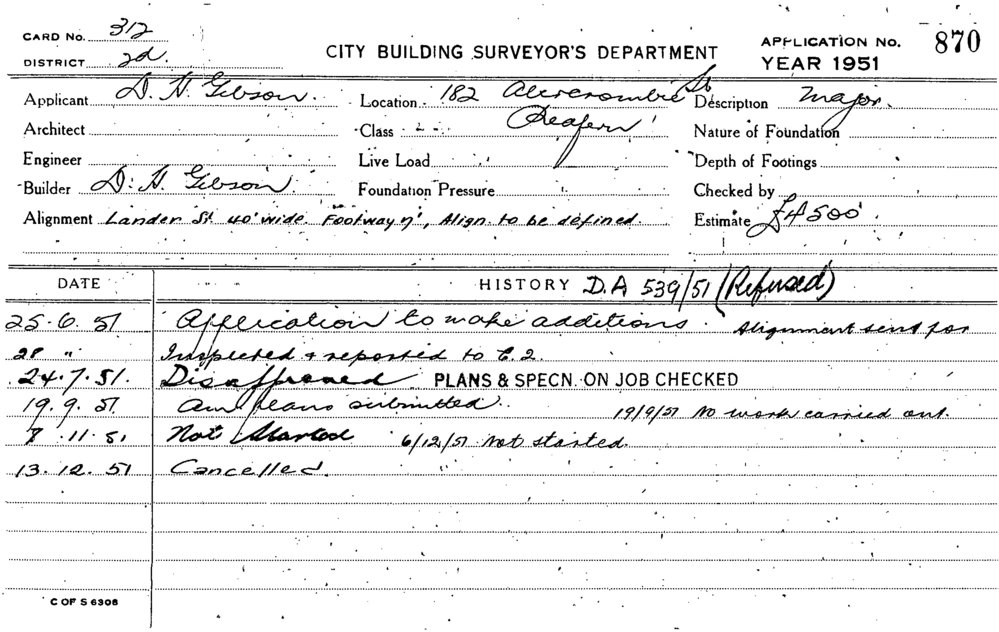 CARD No. 312
DISTRICT 2d.
CITY BUILDING SURVEYOR'S DEPARTMENT
APPLICATION No. 870
YEAR 1951
Applicant D. H. Gibson. Location 182 Abercrombie St Description Major.
Redfern
Architect Class Nature of Foundation
Engineer Live Load Depth of Footings
Builder D. H. Gibson. Foundation Pressure Checked by
Alignment Lander St 40' wide Footway 7', Align. to be defined. Estimate £4500
DATE HISTORY D.A 539/51 (Refused)
25.6.51 Application to make additions. Alignment sent for
28 " Inspected + reported to C.2.
24.7.51. Disapproved PLANS & SPECN. ON JOB CHECKED
19.9.51 Am plans submitted. 19/9/51 No work carried out.
8.11.51 Not Started 6/12/51 Not started.
13.12.51 Cancelled.
C OF S 6308